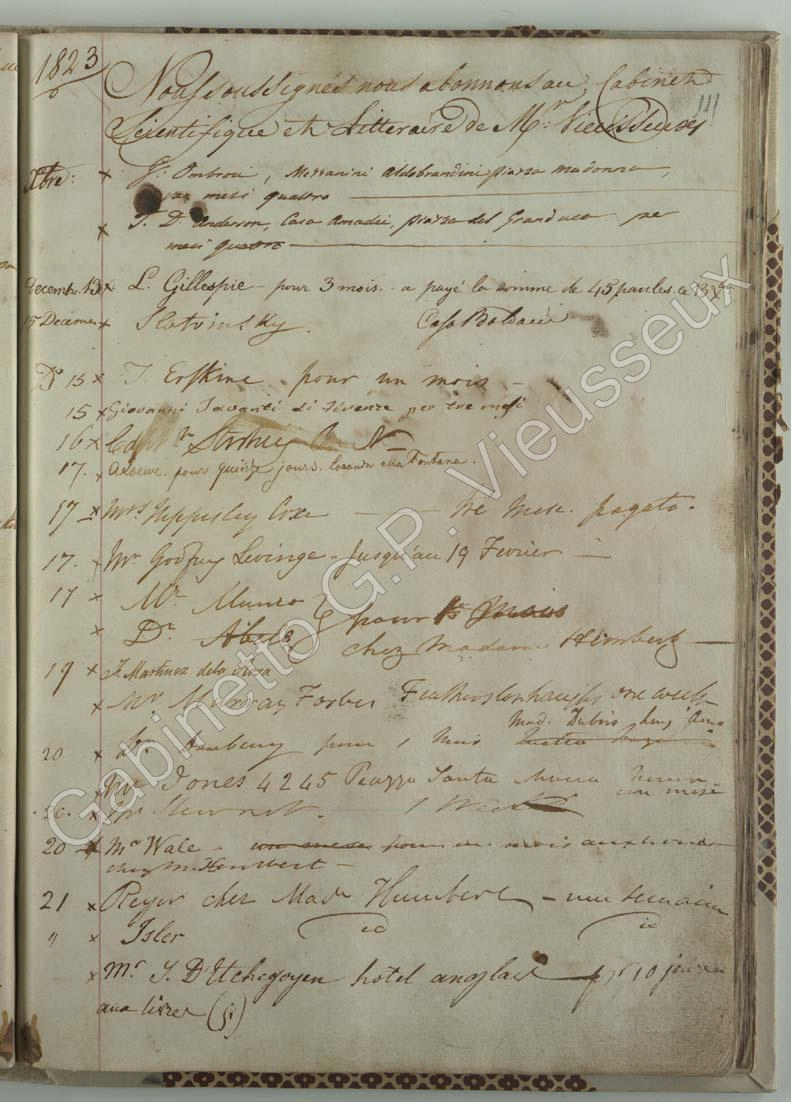 1823
111
Nous soussignés nous abonnons au Cabinet
Scientifique et Litteraire de Mr. Vieusseux
Xbre: x J. Ombrosi, Mezzanini Aldobrandini piazza Madonna,
per mesi quattro
x T. D. Anderson, Casa Amadei, piazza del Granduca per
mesi quattro
Decembre 13 x L. Gillespie - pour 3 mois - a payé la somme de 45 paules ce 13 Xbre
15 Decem x Slotvinsky. Casa
Do 15 x J. Erskine - pour un mois -
15 x Giovanni di Firenze per tre mesi
16 x
17. x A Loewe. pour quinze jours. Locanda della Fontana.
17 - Mrs Hippisley Coxe - - tre mesi. pagato.
17. x Mr Godfrey Levinge - Jusqu'au 19 Fevrier -
17 x Mr. Munro
x Dr. Abel } pour mois
chez Madame Himbert -
19 x F. Martinez de la Rosa
x Mr Murray Forbes one week
20 x pour 1 Mois Mad. Dubois
x Mr Jones 4245 Piazza Santa Maria
un mese
20. x 1 Week
20 x Mr Wale - un mese pour un mois
chez M. Humbert -
21 x Reyer chez Made Humbert - une semaine
" x Isler id id
x Mr. J. D'Etchegoyen hotel anglais pr 10 jours
aux livres
Gabinetto G.P. Vieusseux